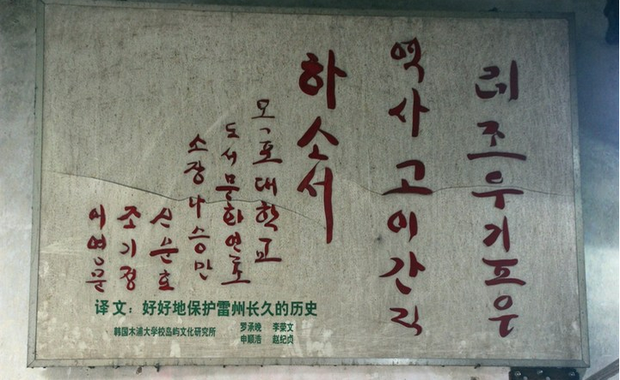 레조우기포우
역사 고이간직
하소서
목포대학교
도서문화연구
소장 나승만
신순호
조기정
이영문
译文：好好地保护雷州长久的历史
韩国木浦大学校岛屿文化研究所
罗承晚 李荣文
申顺浩 赵纪贞